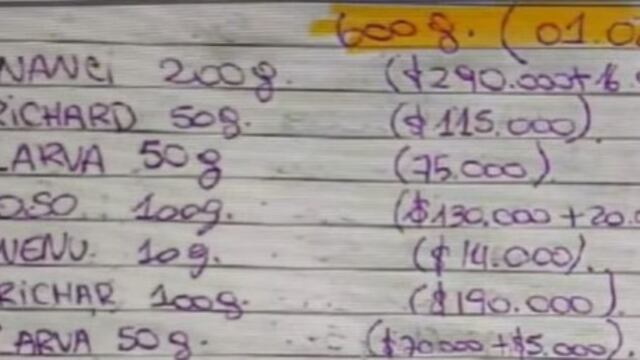 600g. (01.0
NANCi 200g. ($290.000+16.
RiCHARD 50g. ($115.000)
LARVA 50g (75.000)
OSO 100g. ($130.000+20.0
NENU. 10g. ($14.000).
RiCHAR 100g. ($190.000)
LARVA 50g. ($70.000+$5.000).